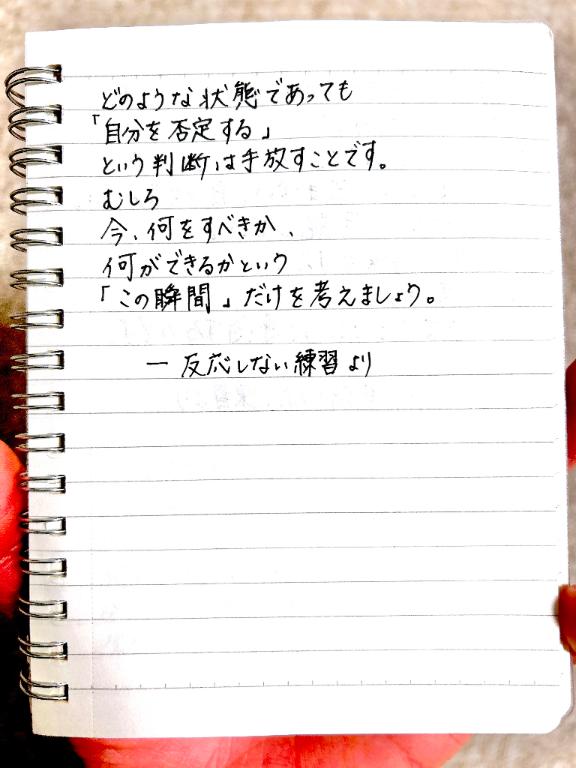 どのような状態であっても
「自分を否定する」
という判断は手放すことです。
むしろ
今、何をすべきか、
何ができるかという
「この瞬間」だけを考えましょう。
― 反応しない練習より